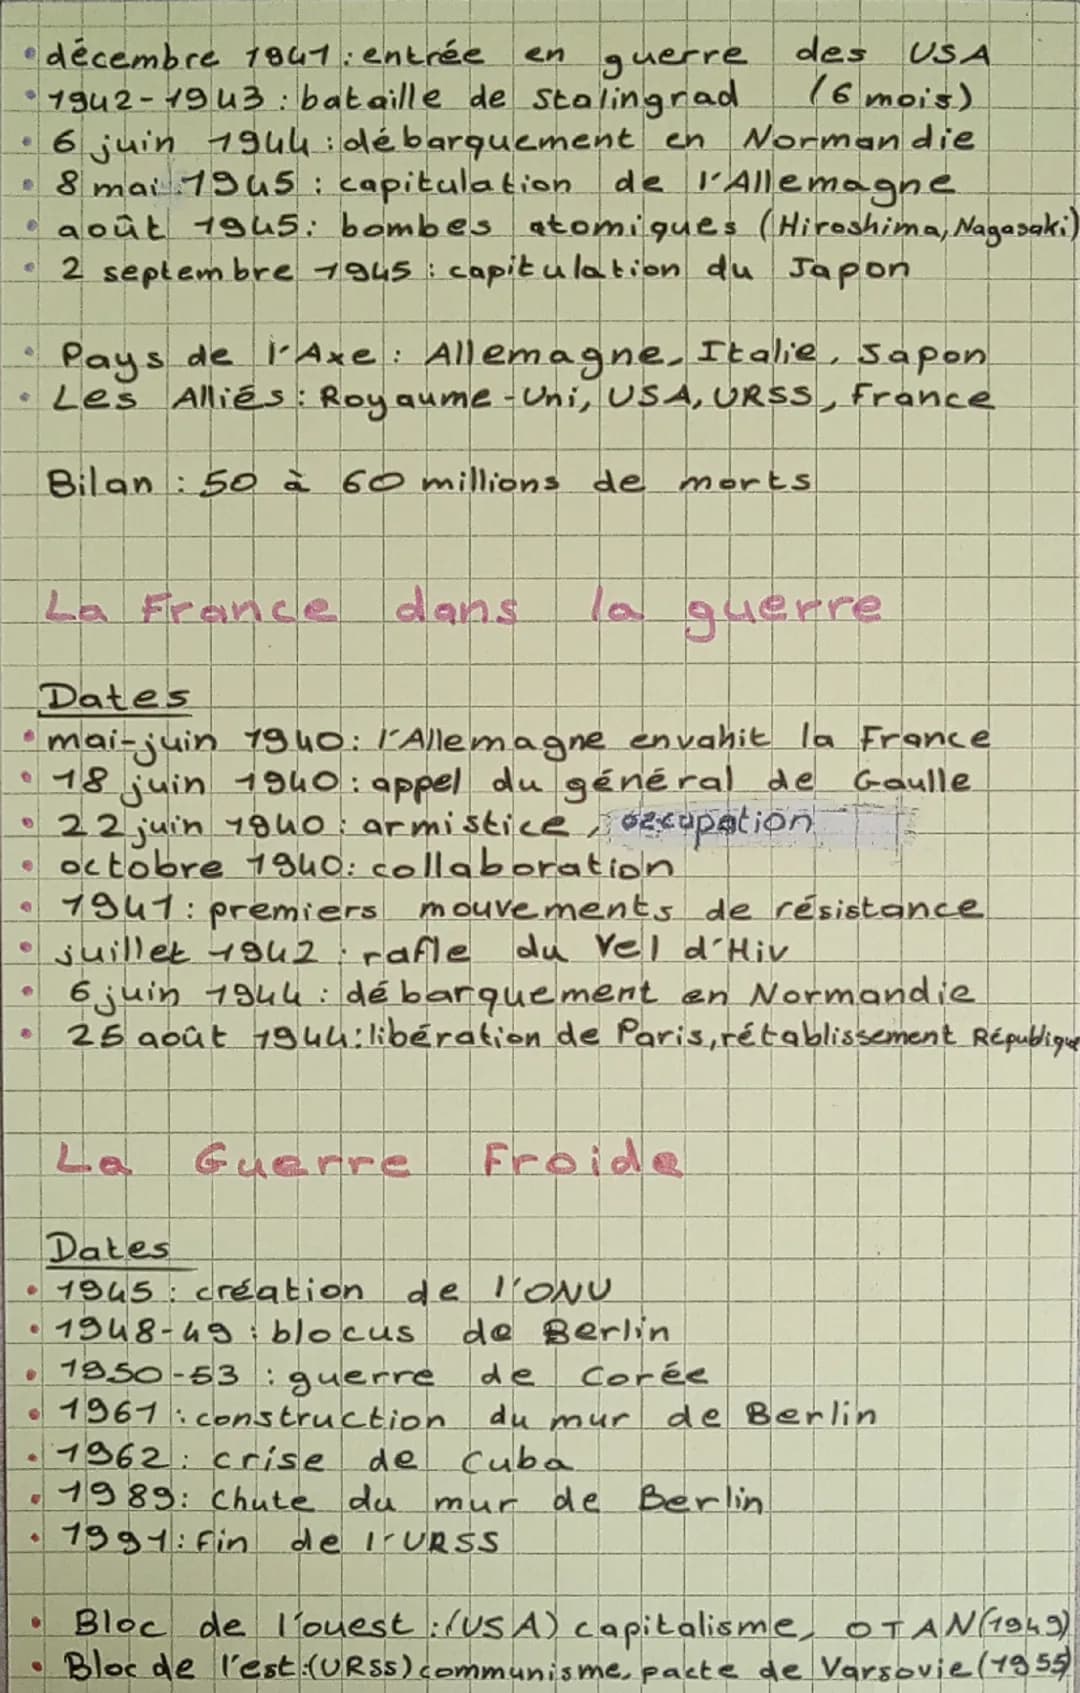 décembre 1941 : entrée en guerre des USA
1942-1943 : bataille de Stalingrad (6 mois)
6 juin 1944 : débarquement en Normandie
8 mai 1945 : capitulation de l'Allemagne
août 1945 : bombes atomiques (Hiroshima, Nagasaki)
2 septembre 1945 : capitulation du Japon
Pays de l'Axe : Allemagne, Italie, Japon
Les Alliés : Royaume-Uni, USA, URSS, France
Bilan : 50 à 60 millions de morts
La France dans la guerre
Dates
mai-juin 1940 : l'Allemagne envahit la France
18 juin 1940 : appel du général de Gaulle
22 juin 1940 : armistice, occupation
octobre 1940 : collaboration
1941 : premiers mouvements de résistance
juillet 1942 : rafle du Vel d'Hiv
6 juin 1944 : débarquement en Normandie
25 août 1944 : libération de Paris, rétablissement République
La Guerre Froide
Dates
1945 : création de l'ONU
1948-49 : blocus de Berlin
1950-53 : guerre de Corée
1961 : construction du mur de Berlin
1962 : crise de Cuba
1989 : Chute du mur de Berlin
1991 : fin de l'URSS
Bloc de l'ouest : (USA) capitalisme, OTAN (1949)
Bloc de l'est : (URSS) communisme, pacte de Varsovie (1955)